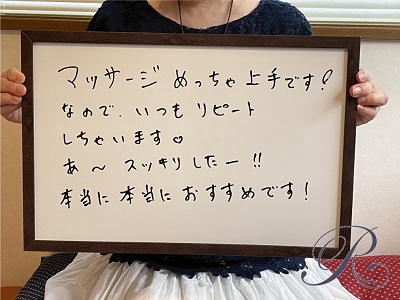 マッサージ めっちゃ上手です!
なので、いつも リピート
しちゃいます♡
あ〜 スッキリしたー!!
本当に本当におすすめです!
R